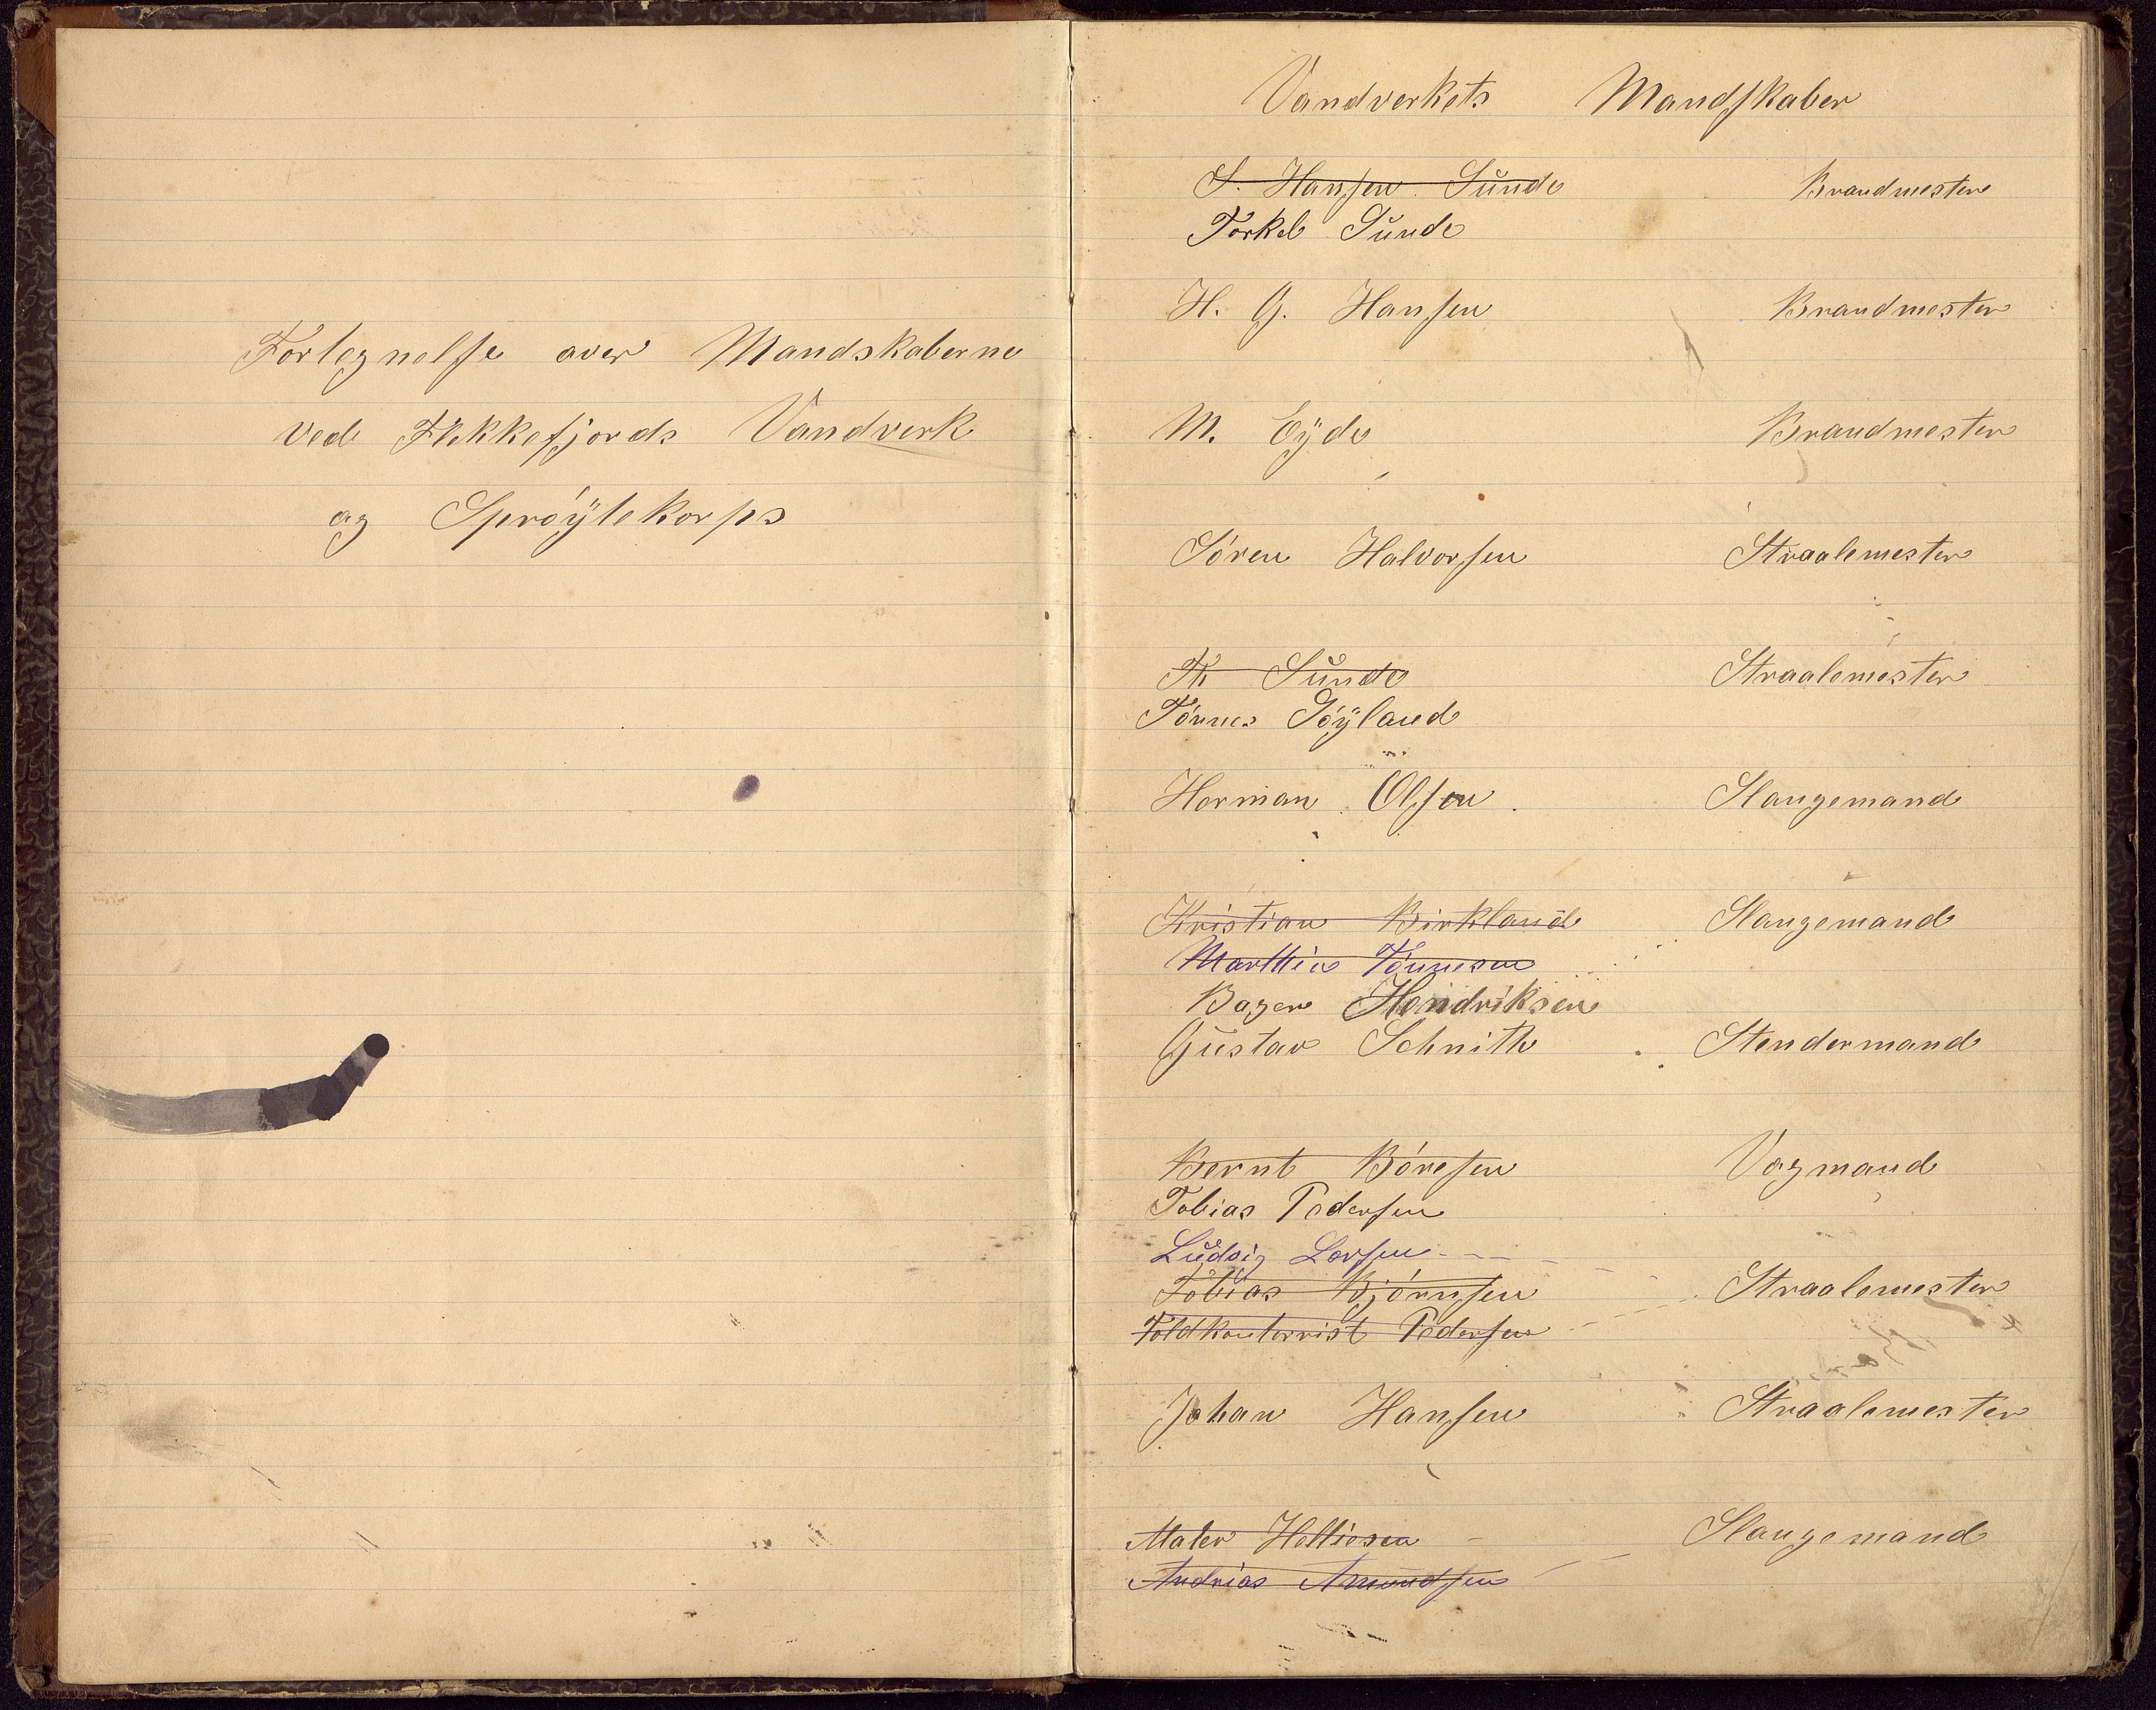 Fortegnelse over Mandskaberne
ved Flekkefjords Vandverk
og Spröÿtekorps
Vandverkets Mandskaber
S. Hansen Sunde Brandmester
Torkel Sunde
H. G. Hansen Brandmester
M. Eÿde Brandmester
Sören Halvorsen Straalemester
Th Sunde Straalemester
Tönnes Göÿland
Herman Olsen Slangemand
Kristian Birkland Slangemand
Marthin Tönnesen
Bager Hendriksen
Gustav Schnith Stendermand
Bernt Böresen Vagmand
Tobias Pedersen
Ludvig Larsen
Tobias Björnsen Straalemester
Toldkontorrist Pedersen
Johan Hansen Straalemester
Maler Helliesen Slangemand
Andrias Amundsen